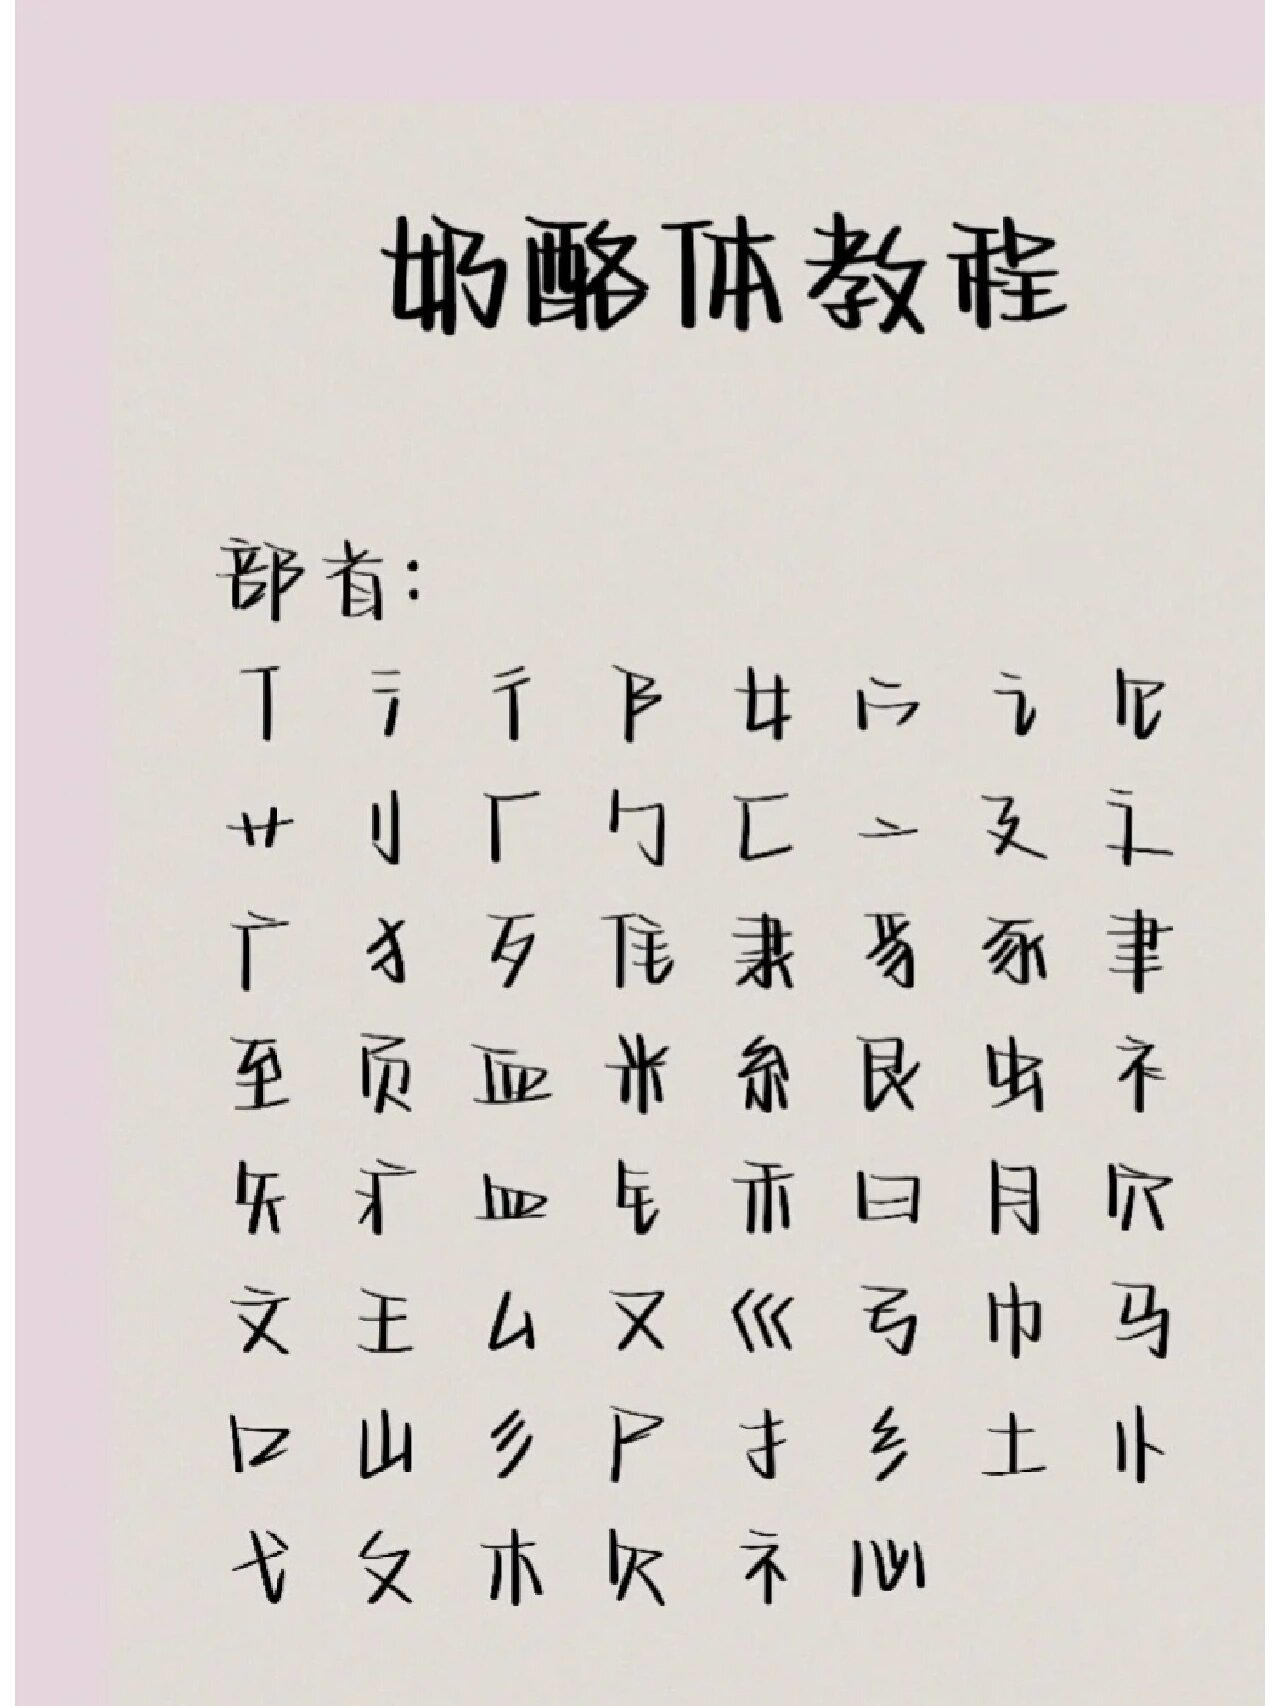 奶酪体教程
部首：
亻 氵 彳 阝 女 宀 讠 㔾
艹 刂 厂 勹 匚 亠 廴 辶
广 犭 歹 隹 隶 豸 豕 聿
至 页 血 米 糸 艮 虫 衤
矢 疒 皿 钅 禾 曰 月 穴
文 王 厶 又 巛 弓 巾 马
口 山 彡 尸 扌 纟 土 忄
弋 攵 木 欠 礻 心